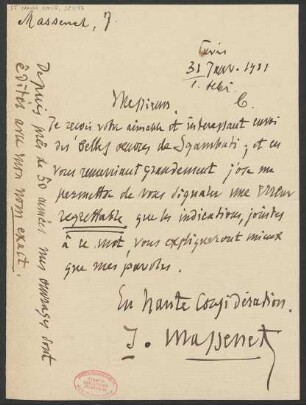 Massenet, J.
Paris
31 Janv. 1911
Messieurs,
Je reçois votre aimable et intéressant envoi
des belles œuvres de Sgambati, et en
vous remerciant grandement j'ose me
permettre de vous signaler une erreur
regrettable que les indications, jointes
à ce mot, vous expliqueront mieux
que mes paroles.
En haute Considération.
J. Massenet
Depuis près de 30 années mes ouvrages sont
édités avec mon nom exact.